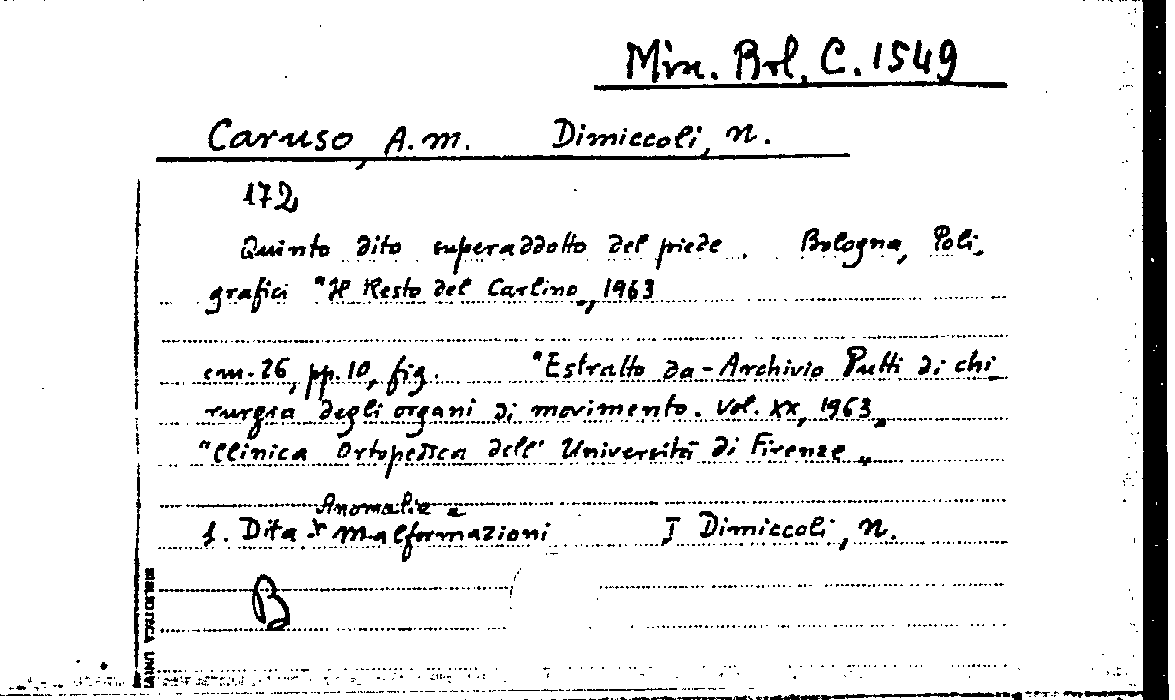 Min. Bol. C. 1549
Caruso, A.M. Dimiccoli, N.
172
Quinto dito superaddotto del piede. Bologna, Poli-
grafici "Il Resto del Carlino„ 1963
cm. 26, pp. 10, fig. "Estratto da-Archivio Putti di chi
rurgia degli organi di movimento. Vol. XX, 1963„
"Clinica Ortopedica dell'Università di Firenze„
Anomalie e
1. Dita Malformazioni I Dimiccoli, N.
B
BIBLIOTECA